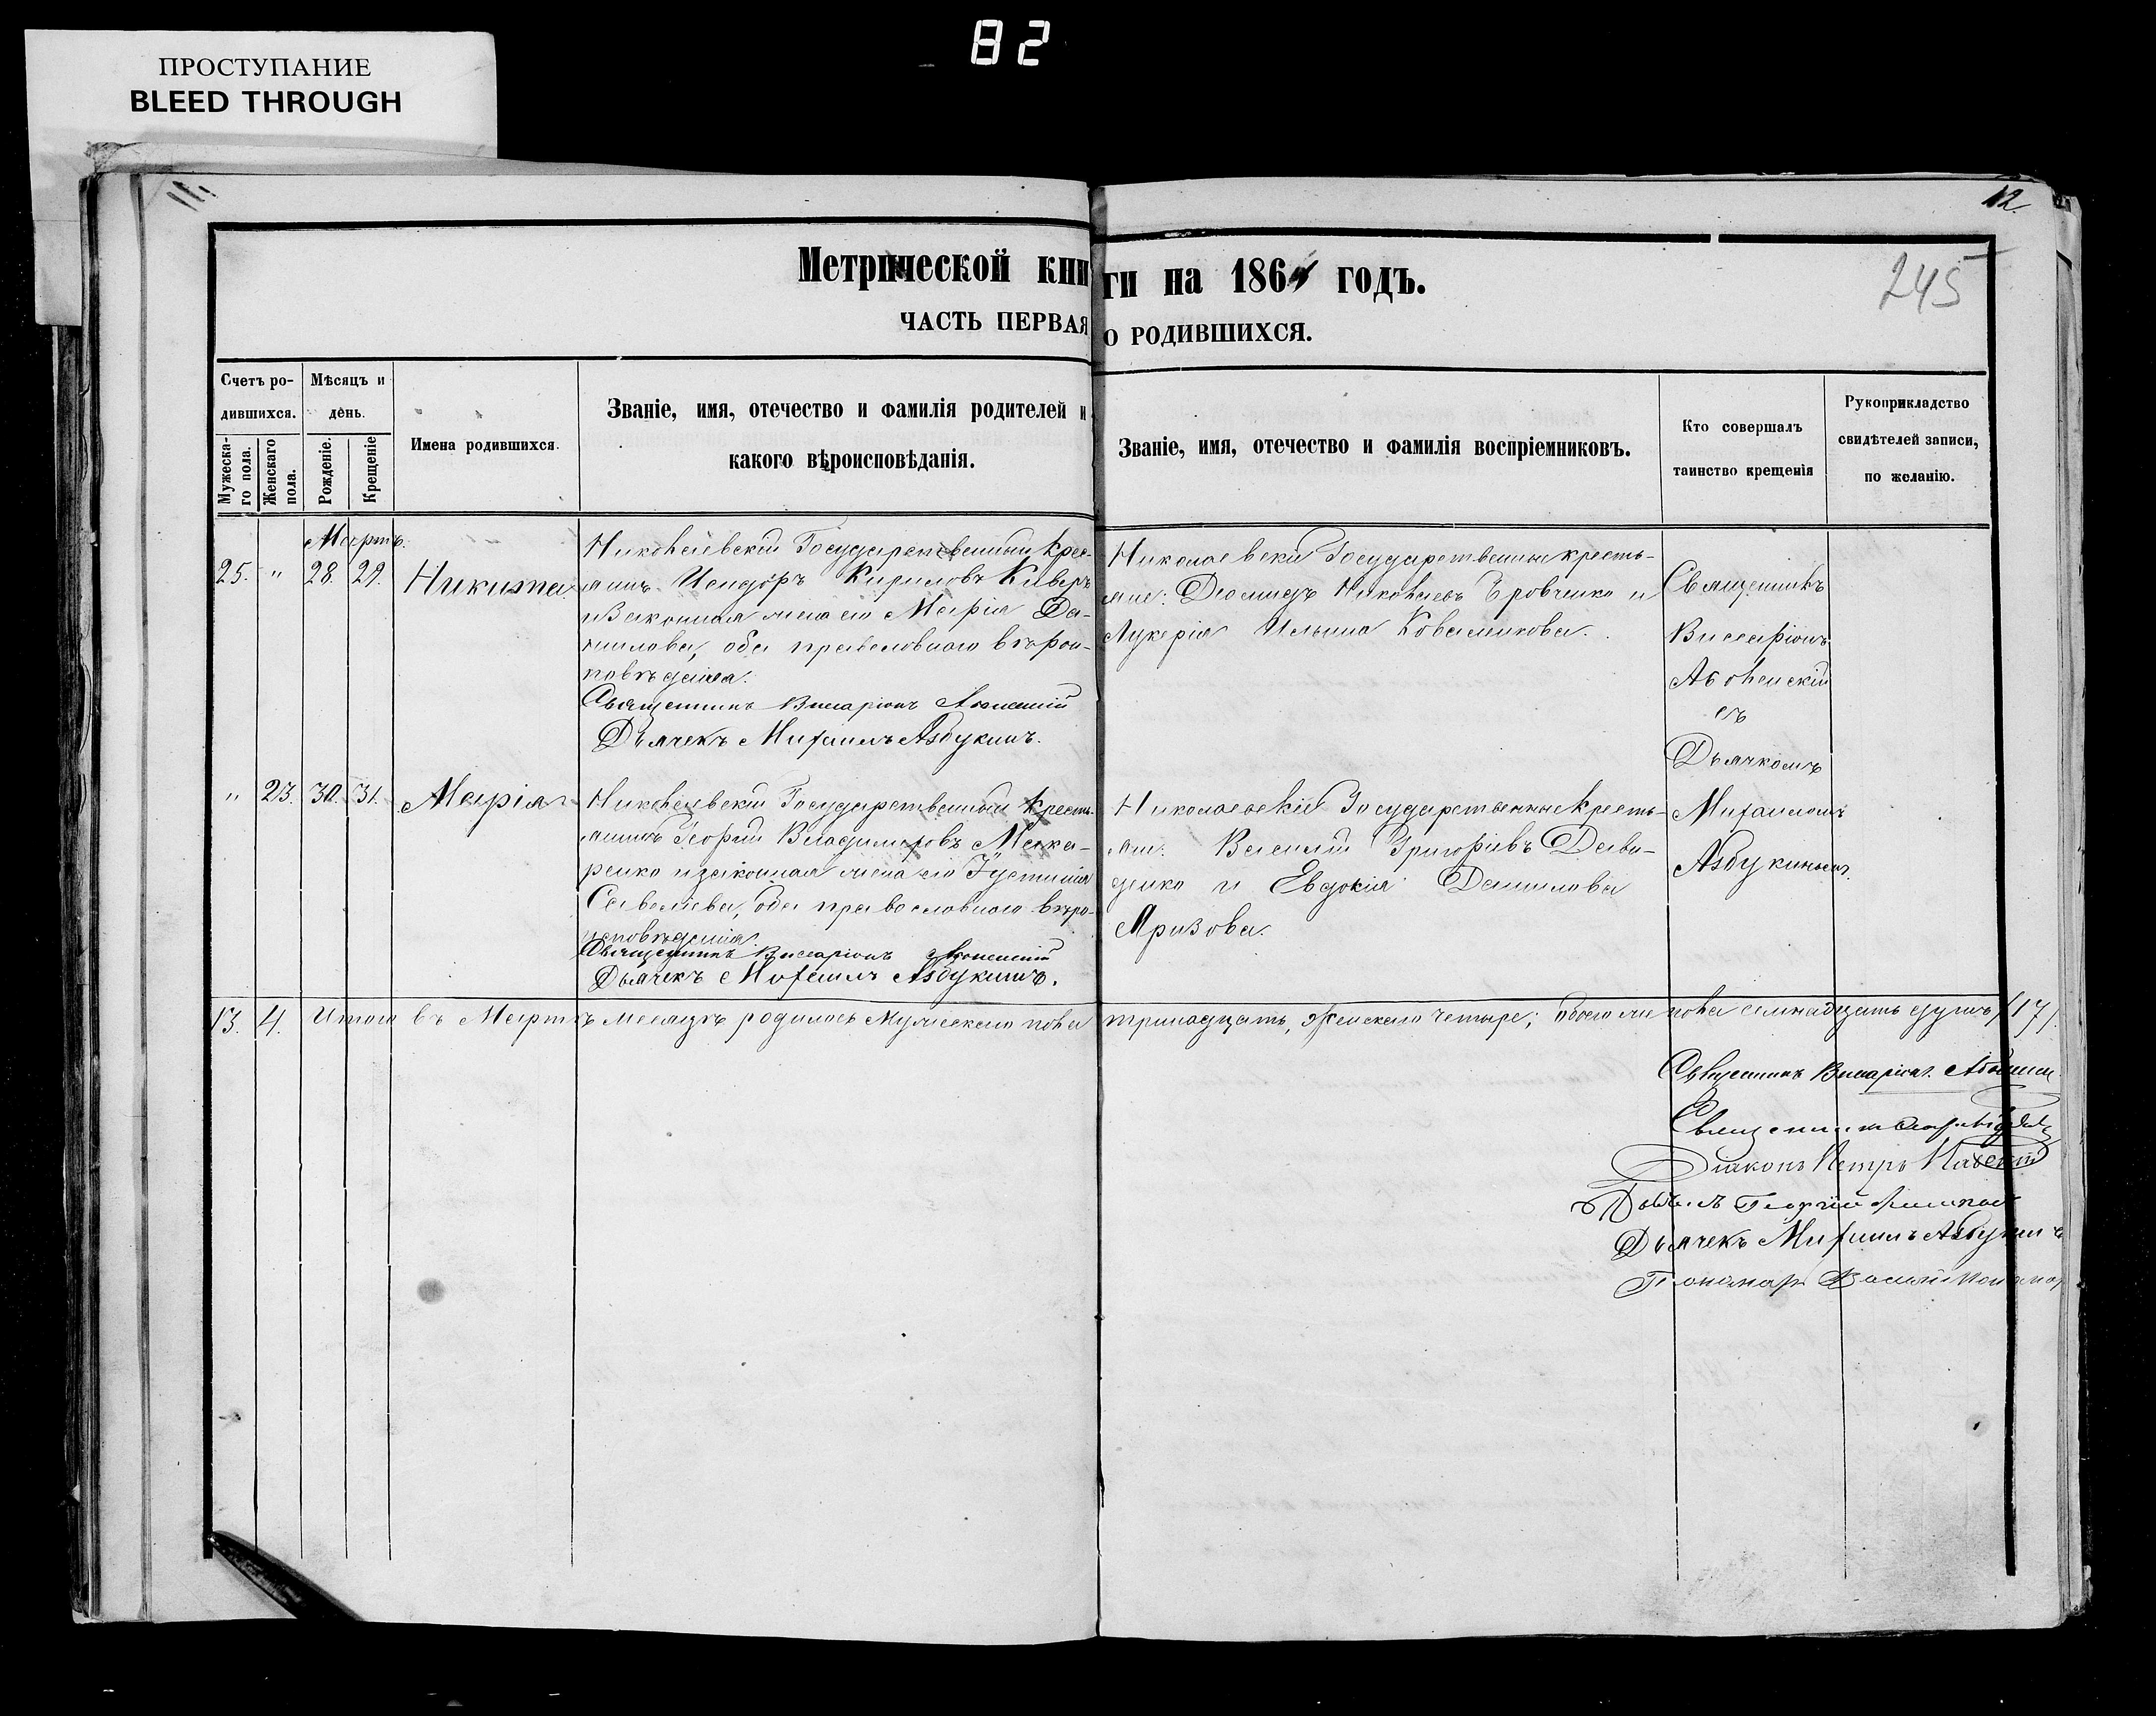 82
ПРОСТУПАНИЕ
BLEED THROUGH
11.
12.
245
Метрической книги на 1864 годъ.
ЧАСТЬ ПЕРВАЯ О РОДИВШИХСЯ.
Счетъ родившихся.
Мужескаго пола.
Женскаго пола.
Мѣсяцъ и день.
Рожденіе.
Крещеніе
Имена родившихся.
Званіе, имя, отечество и фамилія родителей и
какого вѣроисповѣданія.
Званіе, имя, отечество и фамилія воспріемниковъ.
Кто совершалъ
таинство крещенія
Рукоприкладство
свидѣтелей записи,
по желанію.
Мартъ.
25. " 28. 29. Никита.
Николаевскій Государственный крес-
янинъ Исидоръ Кириловъ Киверъ
и законная жена его Марія Да-
нилова, оба православного вѣроис-
повѣданія.
Священникъ Висаріонъ
Дьячекъ Михаилъ Азбукинъ.
Николаевскіи Государственные кресть-
яне: Діомидъ Николаевъ Бровченко и
Лукерія Ильина Коваленкова.
Священникъ
Висаріонъ
съ
Дьячкомъ
Михаиломъ
Азбукинымъ.
" 23. 30. 31. Марія
Николаевскій Государственный кресть-
янинъ Георгій Владимировъ Мака-
ренко и законная жена его Іустинія
Савельева, оба православного вѣро-
исповѣданія.
Священникъ Висаріонъ
Дьячекъ Михаилъ Азбукинъ.
Николаевскіе Государственные кресть-
яне: Василій Григорьевъ Дави-
денко и Евдокія Данилова
Яризова.
13. 4. Итого въ Мартѣ месяцѣ родилось Мужескаго пола тринадцать, Женскаго четыре; обоего же пола семнадцать душъ /17/.
Священникъ Висаріонъ
Священникъ
Діаконъ Петръ
Георгій
Дьячекъ Михаилъ Азбукинъ
Пономарь Василій